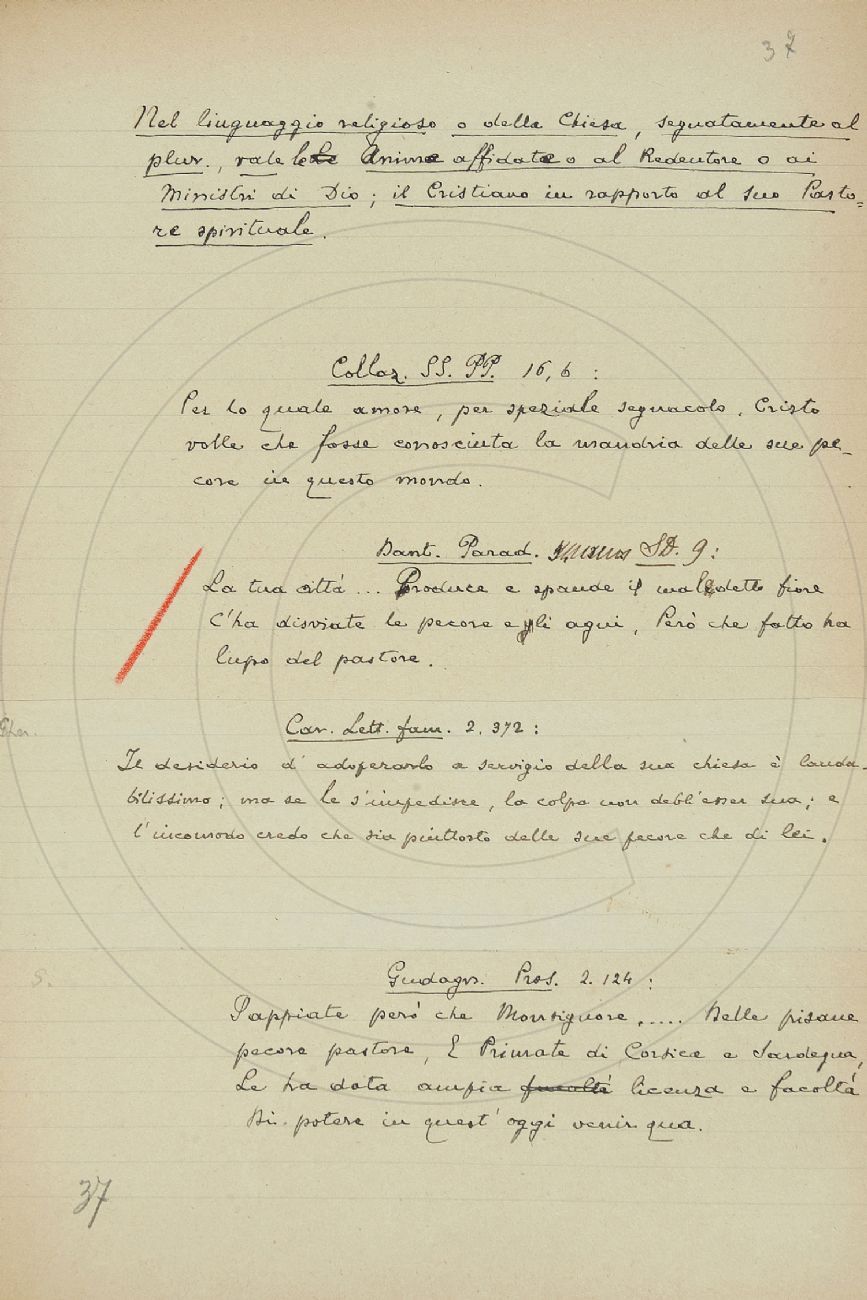 37
Nel linguaggio religioso o della Chiesa, segnatamente al
plur., vale le Anime affidate o al Redentore o ai
Ministri di Dio; il Cristiano in rapporto al suo Pasto=
re spirituale.
Collaz. SS. PP. 16, 6:
Per lo quale amore, per speziale segnacolo, Cristo
volle che fosse conosciuta la mandria delle sue pe-
core in questo mondo.
Dant. Parad. 9:
La tua città... Produce e spande il maledetto fiore
C'ha disviate le pecore e gli agni, Però che fatto ha
lupo del pastore.
Gher.
Car. Lett. fam. 2. 372:
Il desiderio d'adoperarlo a servigio della sua chiesa è lauda-
bilissimo; ma se le s'impedisce, la colpa non debb'esser sua; e
l'incomodo credo che sia piuttosto delle sue pecore che di lei.
S.
Guadagn. Pros. 2. 124:
Sappiate però che Monsignore,..... Delle pisane
pecore pastore, E Primate di Corsica e Sardegna,
Le ha data ampia facoltà licenza e facoltà
Di potere in quest'oggi venir qua.
37